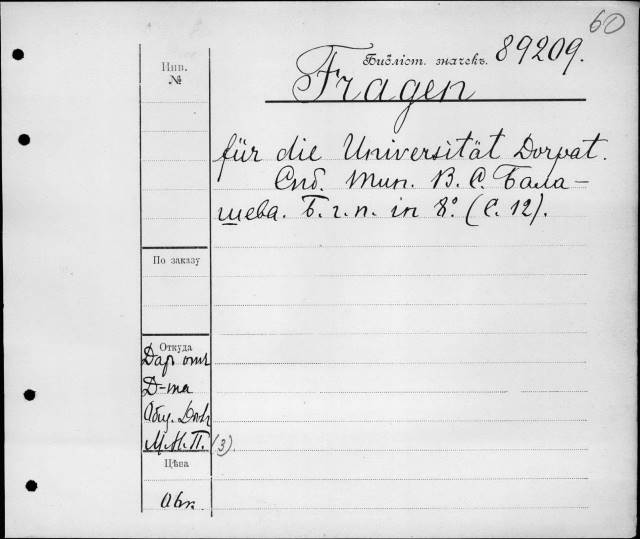 60
Библіот. значекъ. 89209.
Инв.
№
Fragen
für die Universität Dorpat.
Спб. Тип. В. С. Бала-
шева. Б. г. п. in 8º. (С. 12).
По заказу
Откуда
Дар от
Д-та
Общ. Дѣлъ
М.Н.П. (3).
Цѣна